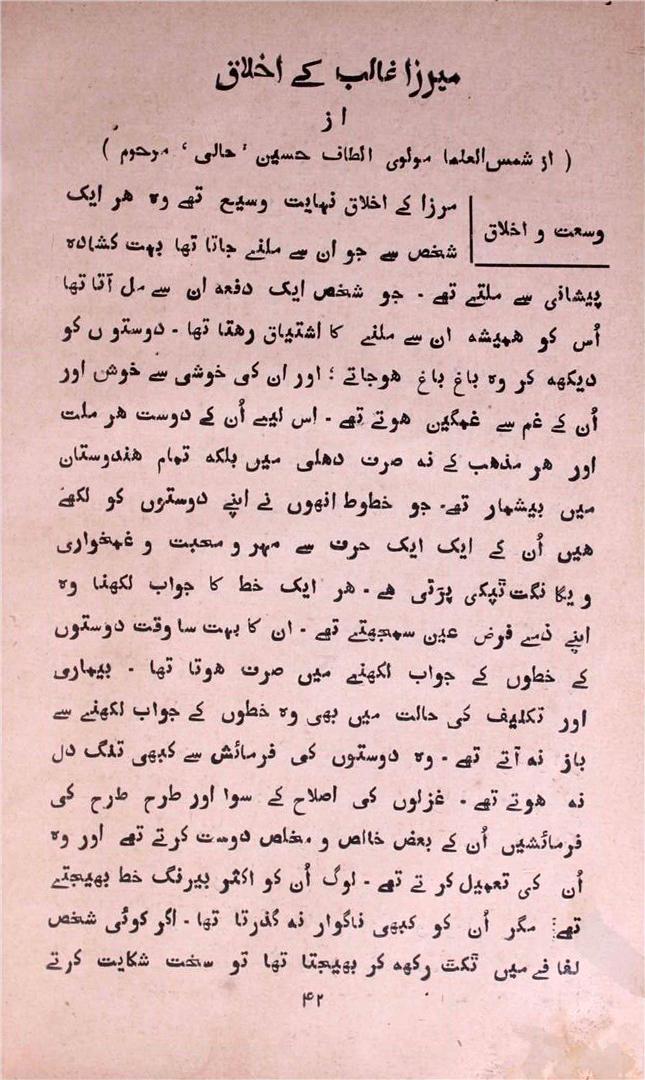 میرزا غالب کے اخلاق
از
( از شمس العلما مولوی الطاف حسین 'حالی' مرحوم )
وسعت و اخلاق
مرزا کے اخلاق نہایت وسیع تھے وہ ہر ایک
شخص سے جو ان سے ملنے جاتا تھا بہت کشادہ
پیشانی سے ملتے تھے - جو شخص ایک دفعہ ان سے مل آتا تھا
اُس کو ہمیشہ ان سے ملنے کا اشتیاق رہتا تھا - دوستوں کو
دیکھہ کر وہ باغ باغ ہوجاتے ؛ اور ان کی خوشی سے خوش اور
اُن کے غم سے غمگین ہوتے تھے - اس لیے اُن کے دوست ہر ملت
اور ہر مذہب کے نہ صرف دہلی میں بلکہ تمام ہندوستان
میں بیشمار تھے - جو خطوط انھوں نے اپنے دوستوں کو لکھے
ہیں اُن کے ایک ایک حرف سے مہر و محبت و غمخواری
و یگانگت ٹپکی پڑتی ہے - ہر ایک خط کا جواب لکھنا وہ
اپنے ذمے فرض عین سمجھتے تھے - ان کا بہت سا وقت دوستوں
کے خطوں کے جواب لکھنے میں صرف ہوتا تھا - بیماری
اور تکلیف کی حالت میں بھی وہ خطوں کے جواب لکھنے سے
باز نہ آتے تھے - وہ دوستوں کی فرمائش سے کبھی تنگ دل
نہ ہوتے تھے - غزلوں کی اصلاح کے سوا اور طرح طرح کی
فرمائشیں اُن کے بعض خالص و مخلص دوست کرتے تھے اور وہ
اُن کی تعمیل کرتے تھے - لوگ اُن کو اکثر بیرنگ خط بھیجتے
تھے مگر اُن کو کبھی ناگوار نہ گذرتا تھا - اگر کوئی شخص
لفافے میں ٹکٹ رکھہ کر بھیجتا تھا تو سخت شکایت کرتے
۴۲